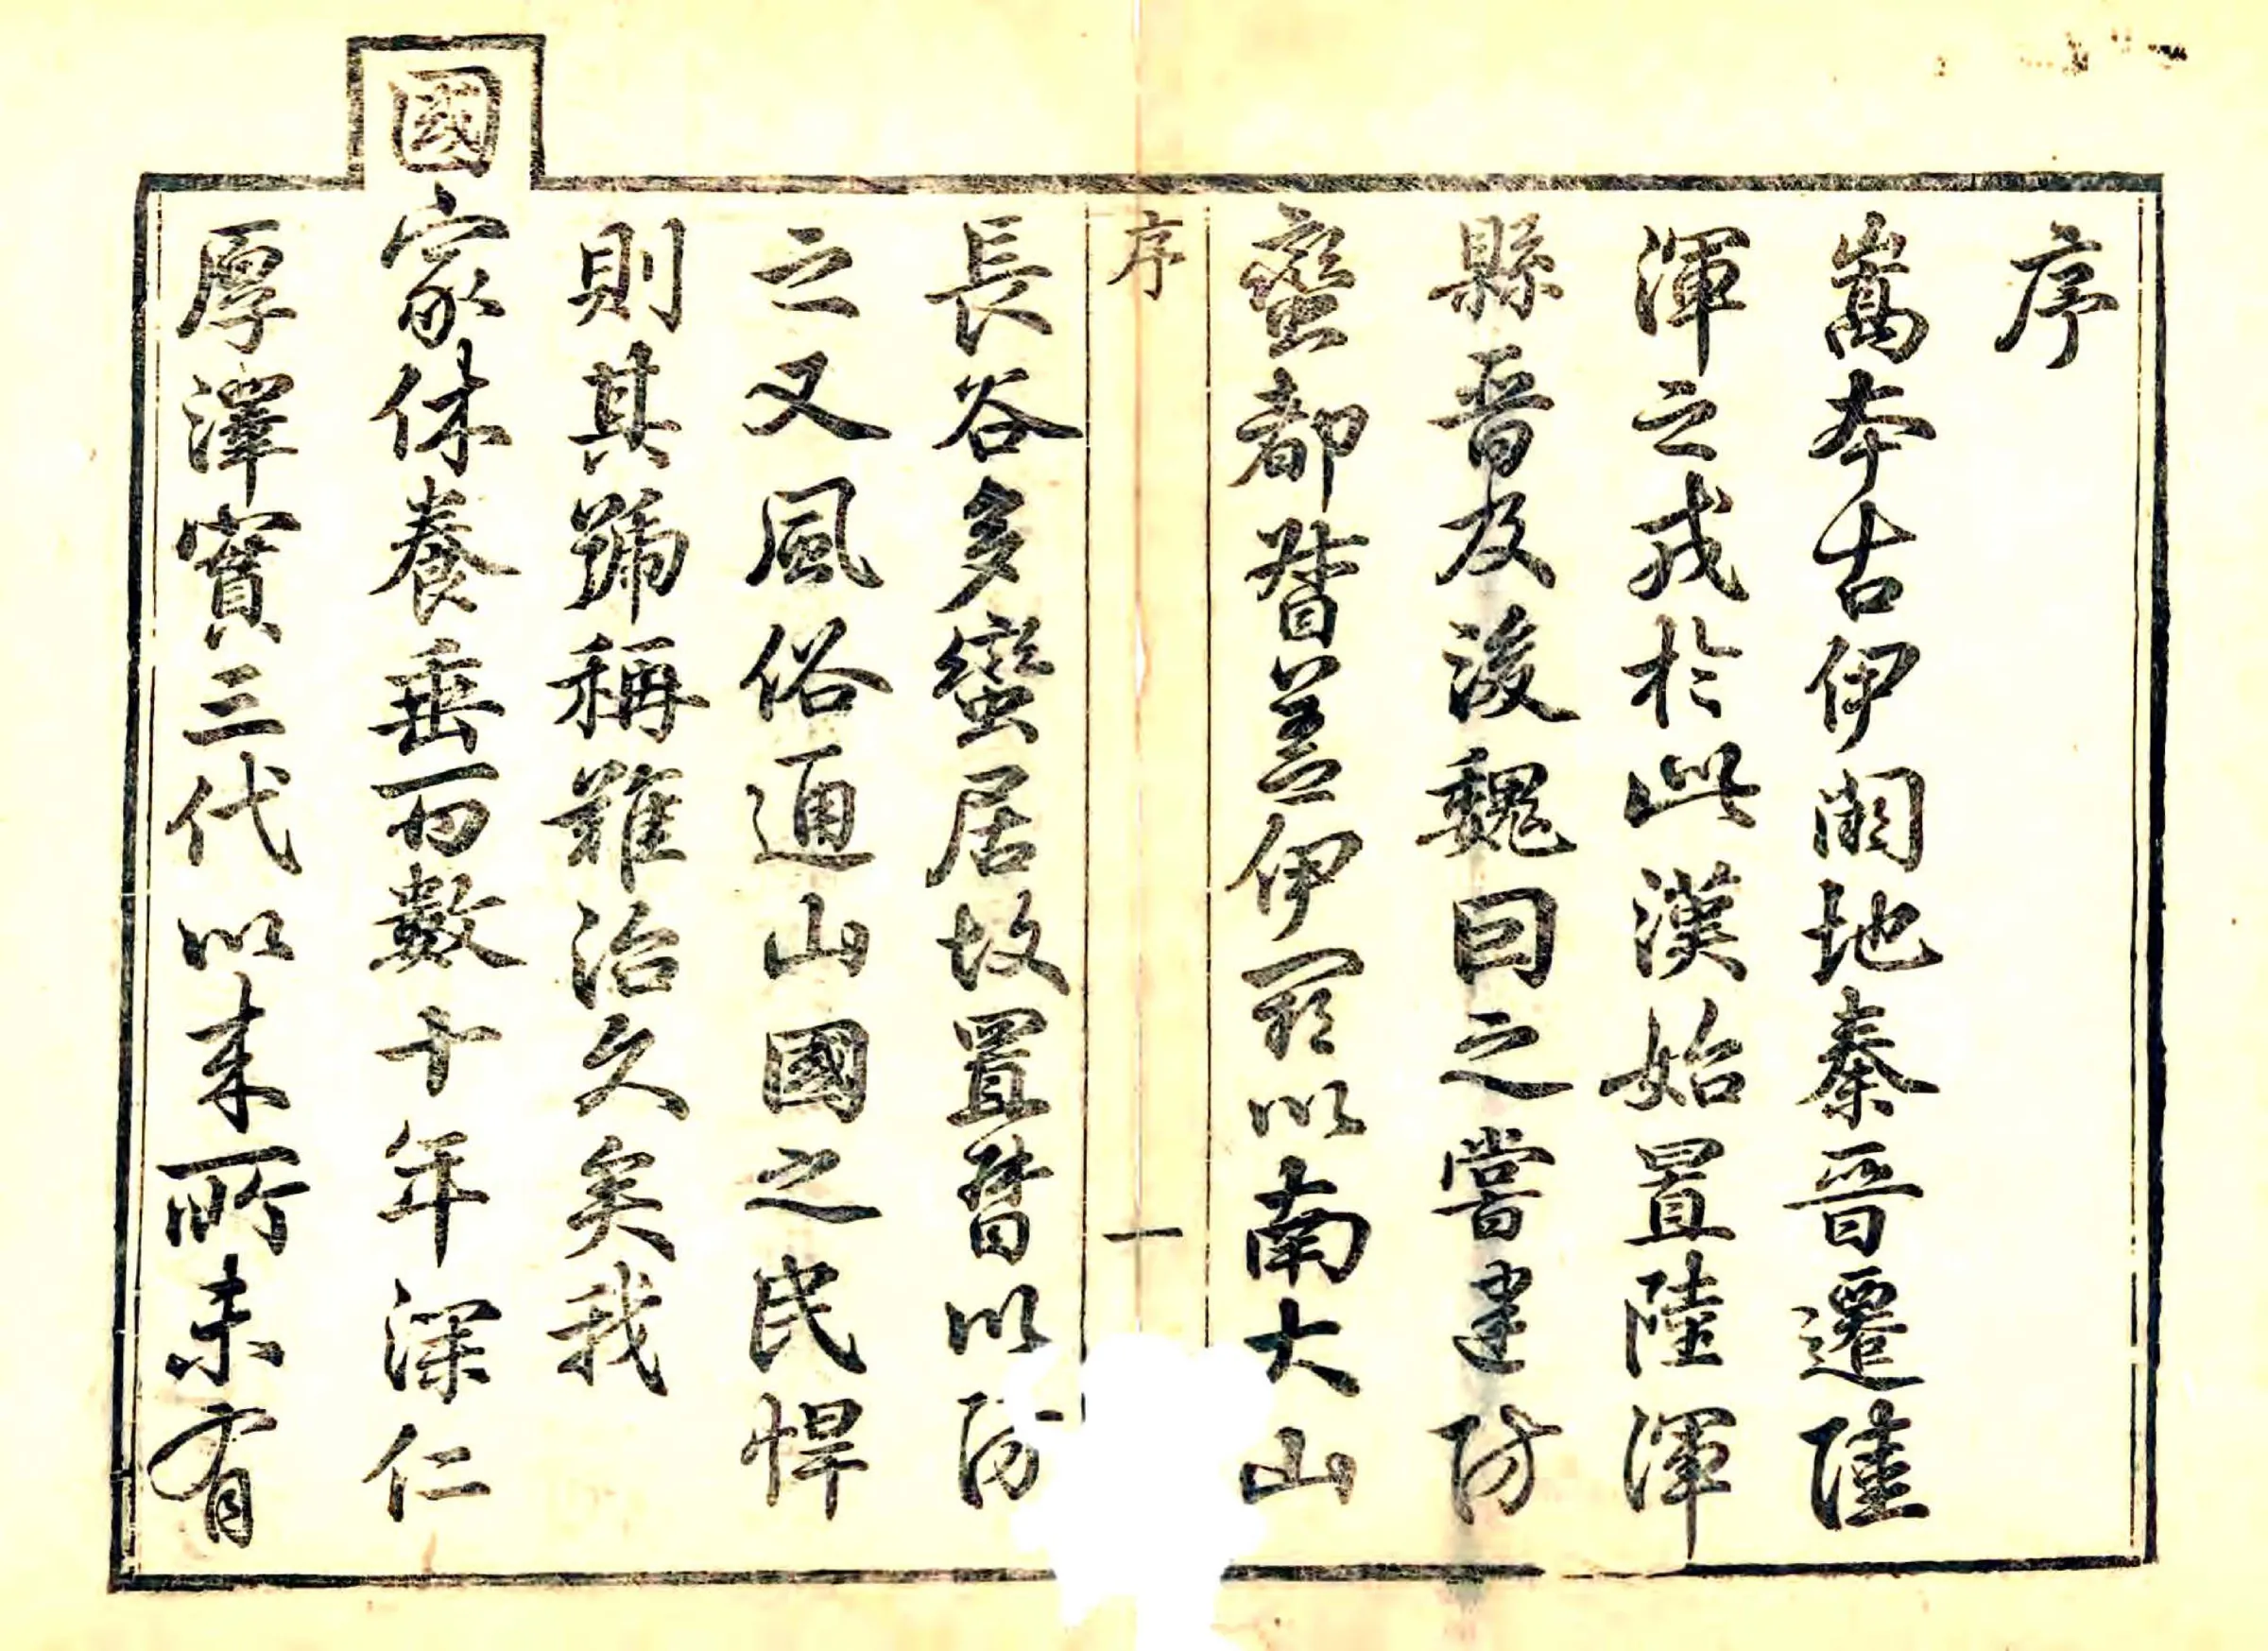 序
嵩本古伊闕地秦晉遷陸
渾之戎於此漢始置陸渾
縣晉及後魏因之嘗建防
蠻都督蓋伊闕以南大山
序
一
長谷多蠻居故置督以防
之又風俗通山國之民悍
則其號稱難治久矣我
國家休養垂百數十年深仁
厚澤實三代以来所未有